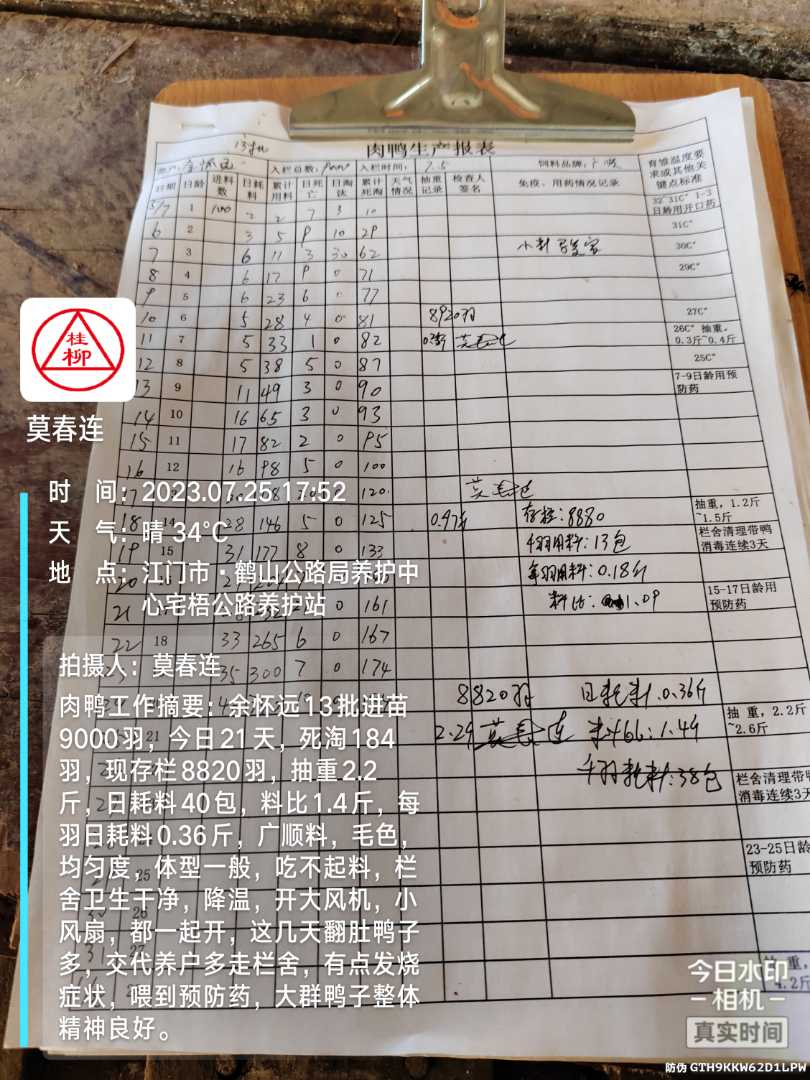 13批
肉鸭生产报表
入栏总数: 9000 入栏时间: 7.5 饲料品牌: 广顺 育雏温度要求或其关键点标准
日期 日龄 进料数 日耗料 累计用料 日死亡 日淘汰 累计死淘 天气情况 抽重记录 检查人签名 免疫、用药情况记录
5/7 1 100 2 2 7 3 10 32~31C° 1-3日龄用开口药
6 2 3 5 9 10 29 31C°
7 3 6 11 3 30 62 30C°
8 4 6 17 9 0 71 29C°
9 5 6 23 6 0 77
10 6 5 28 4 0 81 8920羽 27C°
11 7 5 33 1 0 82 26C° 抽重,0.3斤~0.4斤
12 8 5 38 5 0 87 25C°
13 9 11 49 3 0 90 7-9日龄用预防药
14 10 16 65 3 0 93
15 11 17 82 2 0 95
16 12 16 98 5 0 100
120
18 28 146 5 0 125 0.97斤 存栏:8880 抽重,1.2斤~1.5斤
19 15 31 177 8 0 133 千羽用料:13包 栏舍清理带鸭消毒连续3天
每羽用料:0.18斤
21 161 料比: 1.09 15-17日龄用预防药
22 18 33 265 6 0 167
35 300 7 0 174
8820羽 日耗料0.36斤
21 2.2斤 莫春连 料比:1.4斤 抽重,2.2斤~2.6斤
千羽耗料:38包 栏舍清理带鸭消毒连续3天
23-25日龄预防药
25
26
27
4.2斤
桂柳
莫春连
时 间:2023.07.25 17:52
天 气:晴 34℃
地 点:江门市·鹤山公路局养护中
心宅梧公路养护站
拍摄人:莫春连
肉鸭工作摘要:余怀远13批进苗
9000羽,今日21天,死淘184
羽,现存栏8820羽,抽重2.2
斤,日耗料40包,料比1.4斤,每
羽日耗料0.36斤,广顺料,毛色,
均匀度,体型一般,吃不起料,栏
舍卫生干净,降温,开大风机,小
风扇,都一起开,这几天翻肚鸭子
多,交代养户多走栏舍,有点发烧
症状,喂到预防药,大群鸭子整体
精神良好。
今日水印
-相机-
真实时间
防伪 GTH9KKW62D1LPW